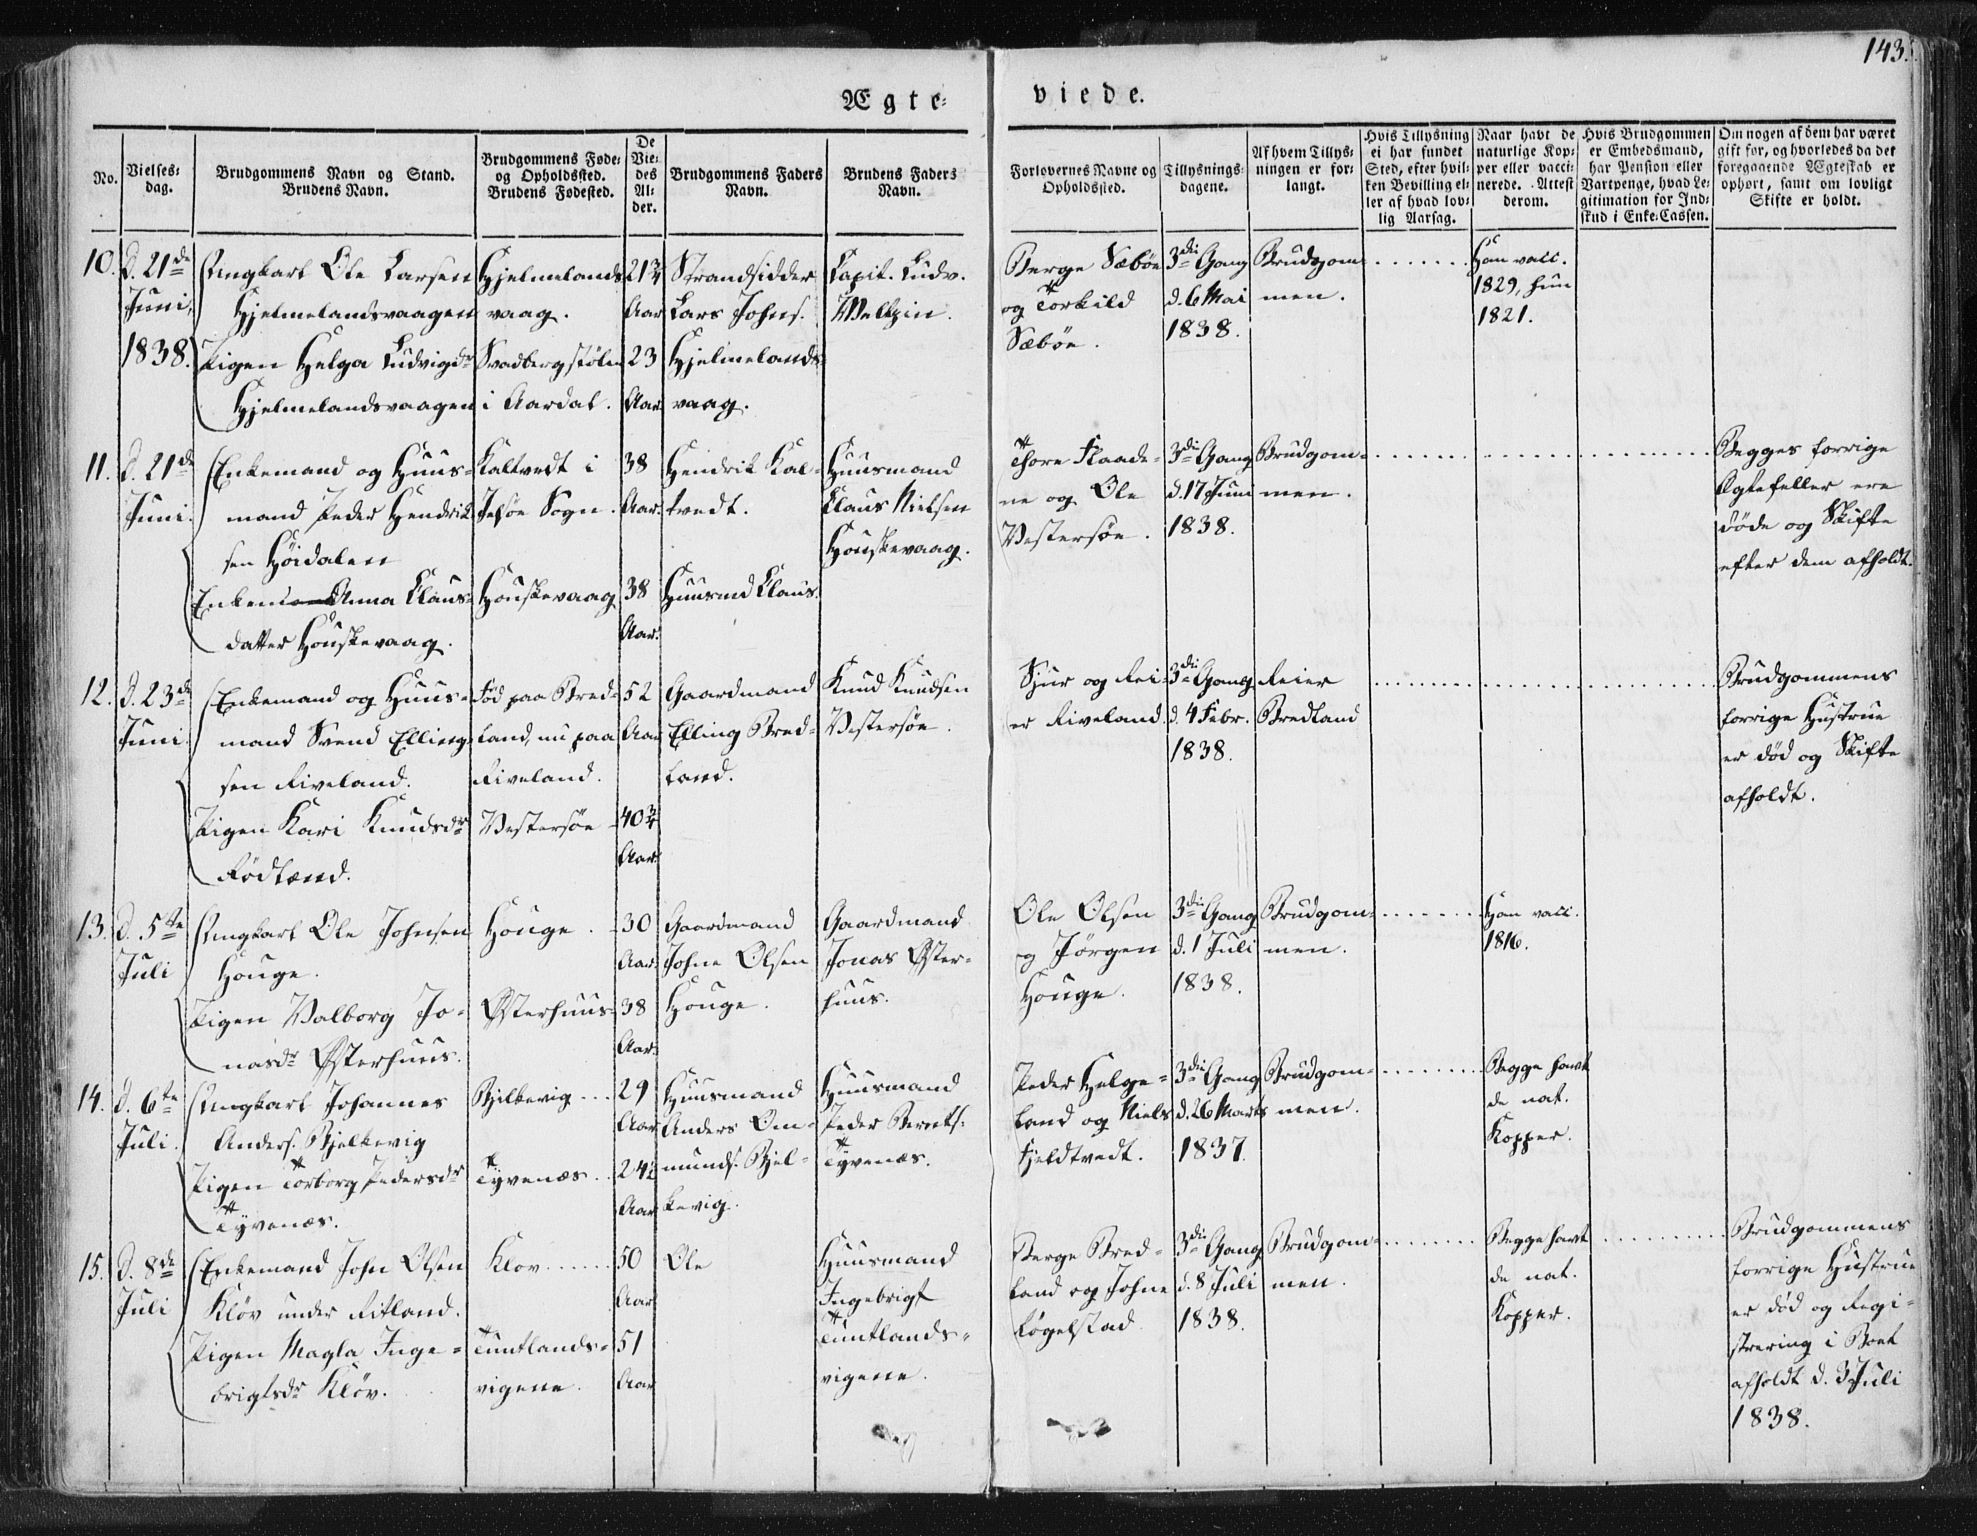 143.
Ægte-
viede.
No.
Vielses-
dag.
Brudgommens Navn og Stand.
Brudens Navn.
Brudgommens Føde-
og Opholdssted.
Brudens Fødested.
De
Vie-
des
Al-
der.
Brudgommens Faders
Navn.
Brudens Faders
Navn.
Forlovernes Navne og
Opholdssted.
Tillysnings-
dagene.
Af hvem Tillys-
ningen er for-
langt.
Hvis Tillysning
ei har fundet
Sted, efter hvil-
ken Bevilling el-
ler af hvad lov-
lig Aarsag.
Naar havt de
naturlige Kop-
per eller vacci-
nerede. Attest
derom.
Hvis Brudgommen
er Embedsmand,
har Pension eller
Vartpenge, hvad Le-
gitimation for Ind-
skud i Enke-Cassen.
Om nogen af dem har været
gift før, og hvorledes da det
foregaaende Ægteskab er
ophørt, samt om lovligt
Skifte er holdt.
10.
d. 21de
Juni,
1838.
Ungkarl Ole Larsen
Hjelmelandsvaagen
Pigen Helga Ludvigdr
Hjelmelandsvaagen
Hjelmelands
vaag.
Svadbergstølen
i Aardal.
21 3/4
Aar
23
Aar
Strandsidder
Lars Johns.
Hjelmelands-
vaag.
Capit. Ludv.
Weltzin.
Berge Sæbøe
og Torkild
Sæbøe.
3die Gang
d. 6 Mai
1838.
Brudgom-
men.
Han vacc.
1829, hun
1821.
11.
d. 21de
Juni.
Enkemand og Huus-
mand Peder Hendrik
sen Høidalen
Enken Anna Claus-
datter Houskevaag.
Kaltvedt i
Jelsøe Sogn.
Houskevaag
38
Aar.
38
Aar.
Hendrik Kal-
tvedt.
Huusmd Claus.
Huusmand
Claus Nielsen
Houskevaag.
Thore Flaade-
ne og Ole
Vestersøe.
3die Gang
d. 17 Juni
1838.
Brudgom-
men.
Begges forrige
Ægtefeller ere
døde og Skifte
efter dem afholdt.
12.
d. 23de
Juni.
Enkemand og Huus-
mand Svend Elling-
sen Riveland.
Pigen Kari Knudsdr
Rødland.
Fød paa Bred-
land, nu paa
Riveland.
Vestersøe
52
Aar
40 3/4
Aar
Gaardmand
Elling Bred-
land.
Knud Knudsen
Vestersøe.
Sjur og Rei-
er Riveland.
3die Gang
d. 4 Febr.
1838.
Reier
Bredland
Brudgommens
forrige Hustrue
er død og Skifte
afholdt.
13.
d. 5te
Juli
Ungkarl Ole Johnsen
Houge.
Pigen Valborg Jo-
nasdr Østerhuus.
Houge.
Østerhuus
30
Aar.
38
Aar.
Gaardmand
Johne Olsen
Houge.
Gaardmand
Jonas Øster-
huus.
Ole Olsen
og Jørgen
Houge.
3die Gang
d. 1 Juli
1838.
Brudgom-
men.
Han vacc.
1816.
14.
d. 6te
Juli.
Ungkarl Johannes
Anders. Bjelkevig
Pigen Torborg Pedersdr
Tyvenæs.
Bjelkevig
Tyvenæs
29
Aar
24 1/2
Aar
Huusmand
Anders Om-
munds. Bjel-
kevig.
Huusmand
Peder Berents.
Tyvenæs.
Peder Helge-
land og Niels
Fjeldtvedt.
3die Gang
d. 26 Marts
1837.
Brudgom-
men.
Begge havt
de nat.
Kopper.
15.
d. 8de
Juli
Enkemand John Olsen
Kløv under Ritland.
Pigen Magla Inge-
brigtsdr Kløv.
Klov
Tuntlands-
vigene.
50
Aar
51
Aar
Ole
Huusmand
Ingebrigt
Tuntlands-
vigene.
Berge Bred-
land og Johne
Løgelstad
3die Gang
d. 8 Juli
1838.
Brudgom-
men.
Begge havt
de nat.
Kopper.
Brudgommens
forrige Hustrue
er død og Regi-
strering i Boet
afholdt d. 3 Juli
1838.